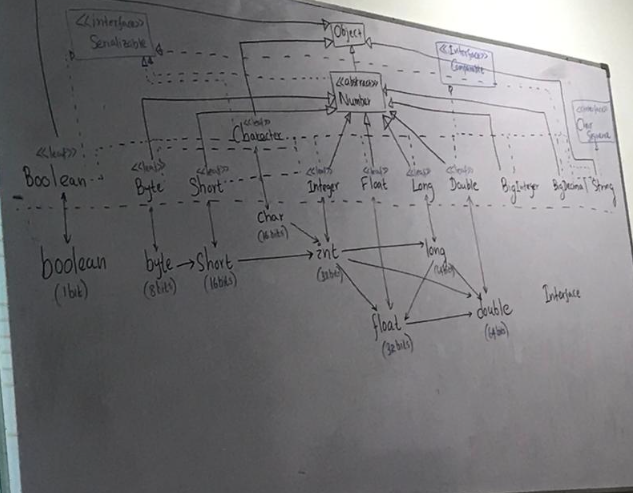 <<interface>>
Serializable
Object
<<Interface>>
Comparable
<<abstract>>
Number
<<interface>>
Char
Sequence
<<leaf>>
Character
<<leaf>>
Boolean
<<leaf>>
Byte
<<leaf>>
Short
<<leaf>>
Integer
<<leaf>>
Float
<<leaf>>
Long
<<leaf>>
Double
BigInteger
BigDecimal
String
char
(16bits)
boolean
(1bit)
byte
(8bits)
short
(16bits)
int
(32bits)
long
float
(32bits)
double
Interface